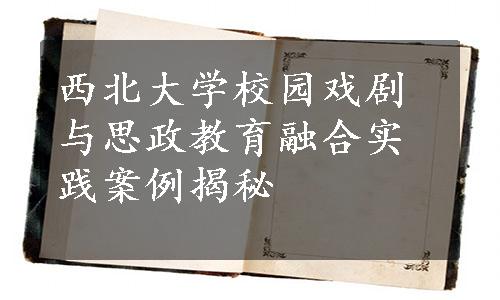 西北大学校园戏剧
与思政教育融合实
践案例揭秘